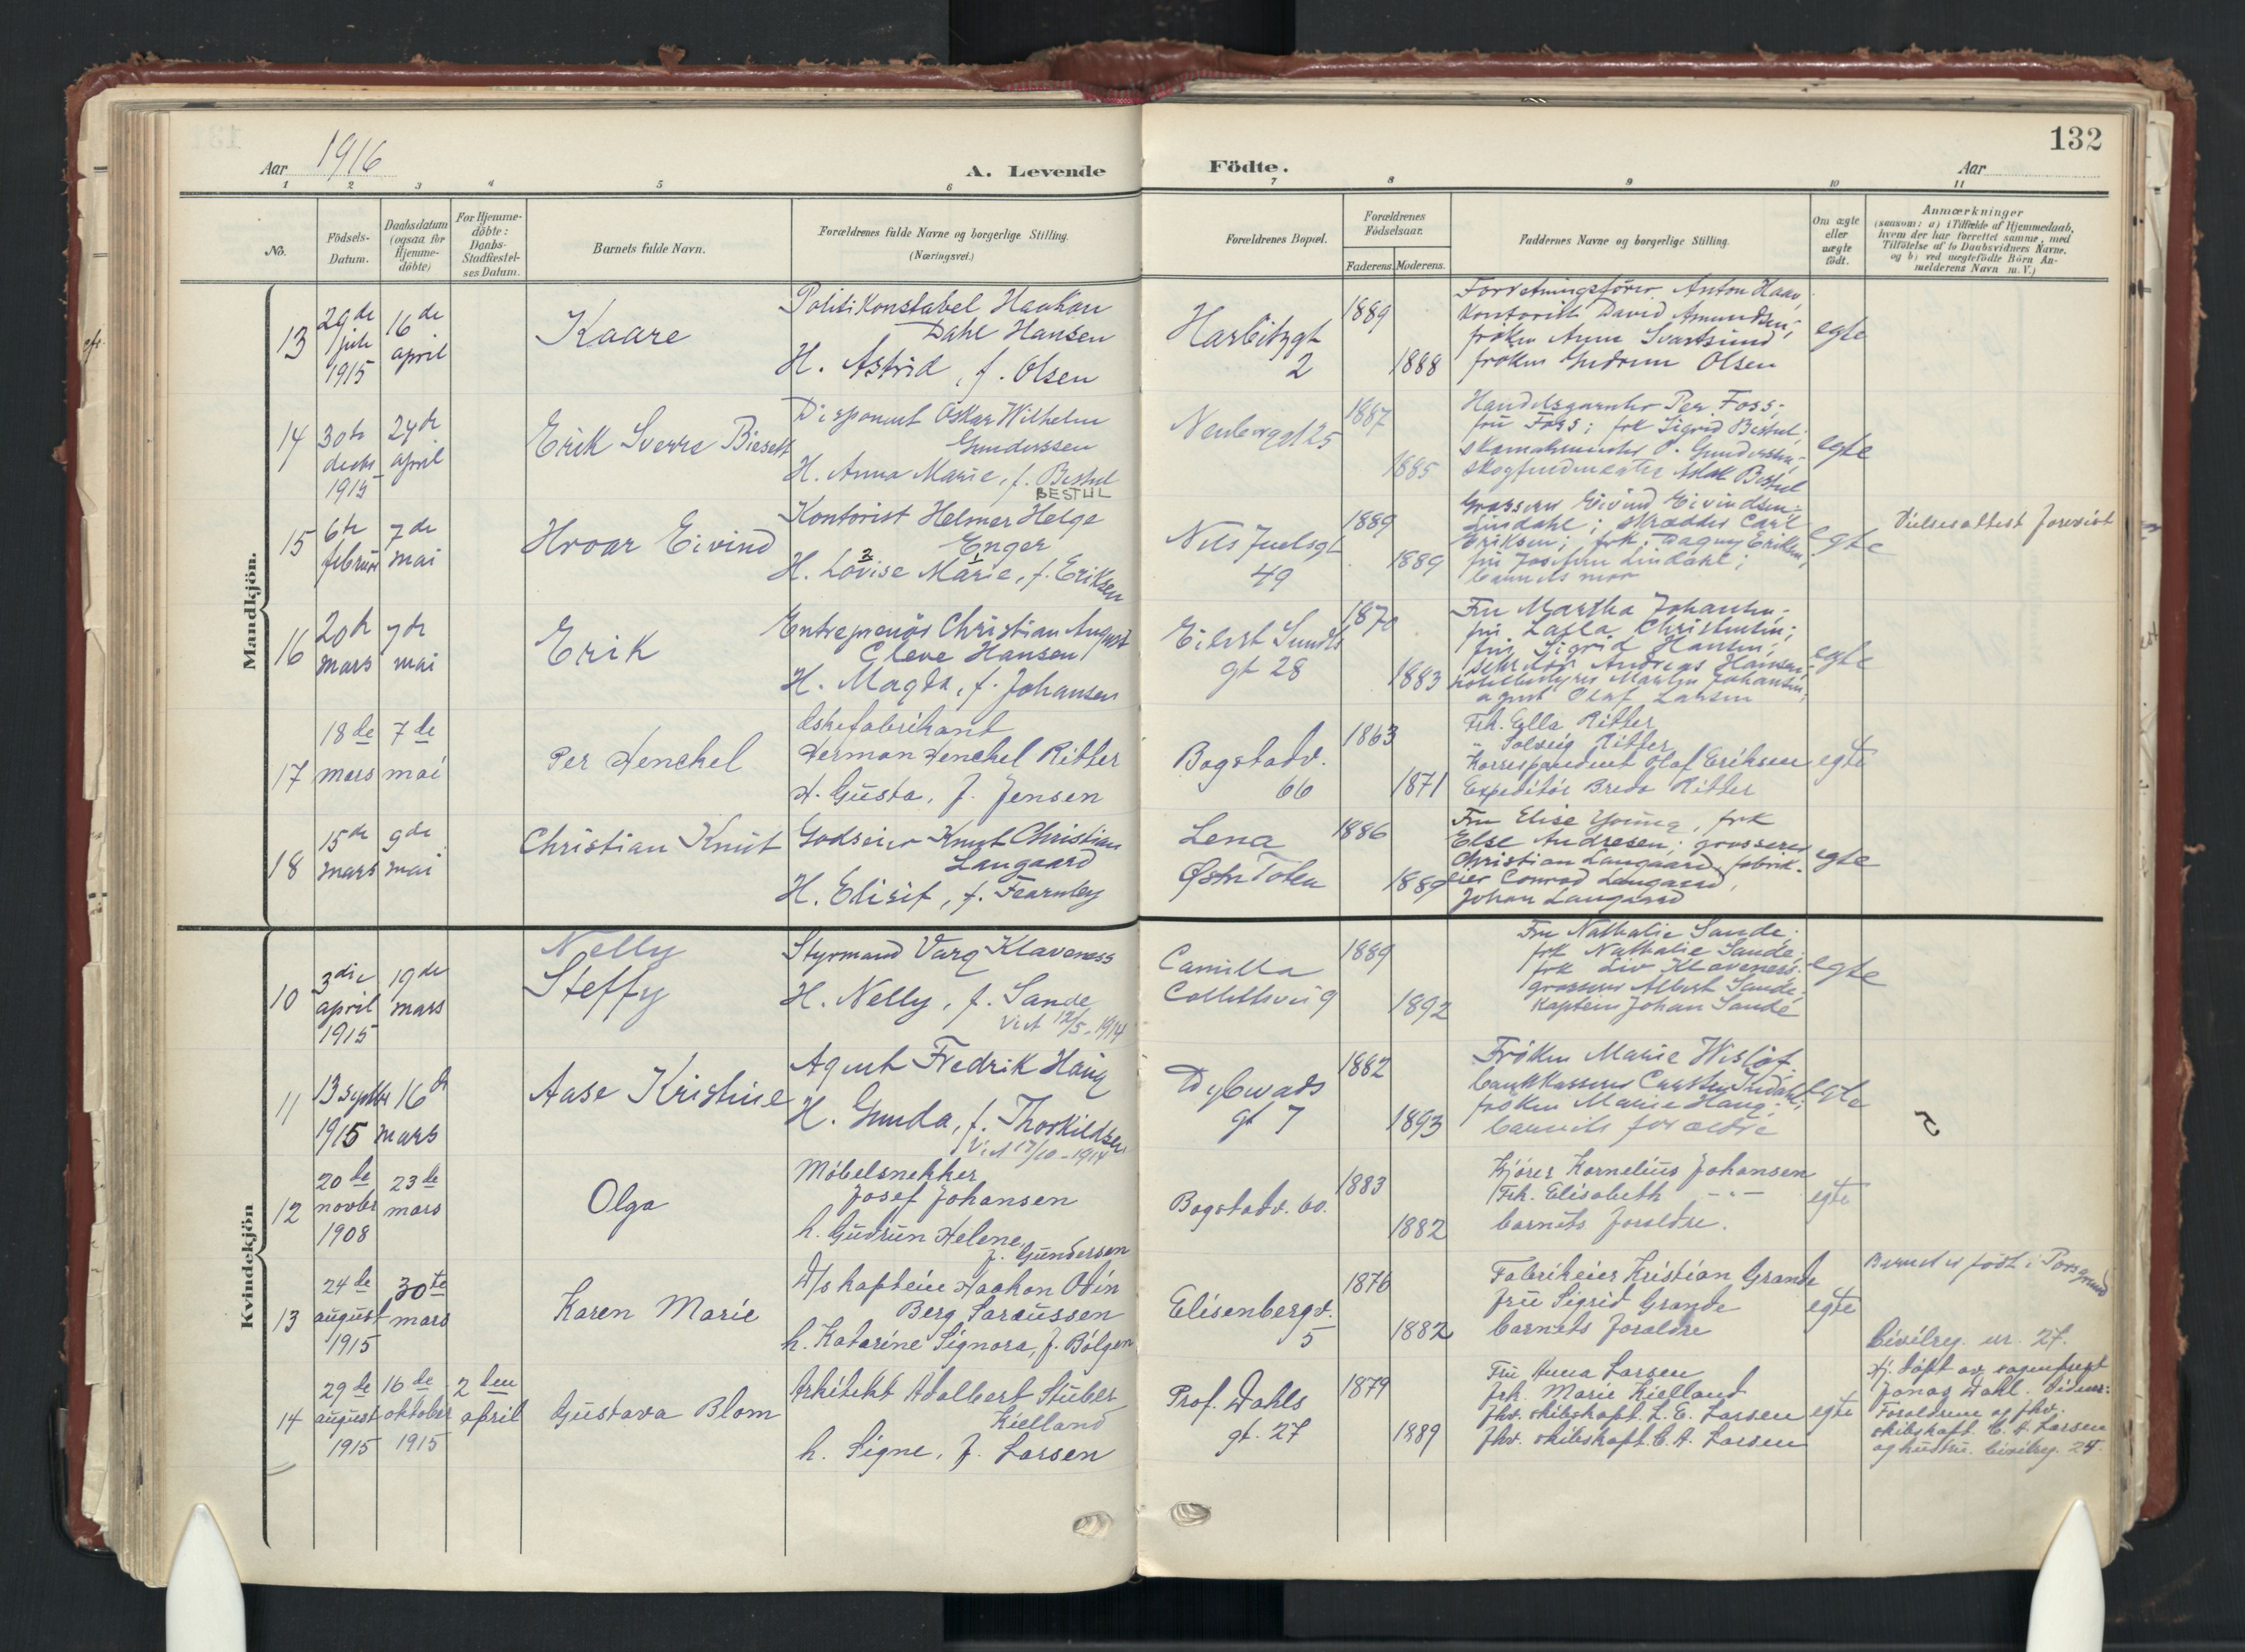 132
Aar 1916
A. Levende
Födte.
Aar
1 2 3 4 5 6 7 8 9 10 11
No.
Födsels-
Datum.
Daabsdatum
(ogsaa for
Hjemme-
döbte)
For Hjemme-
döbte:
Daabs-
Stadfæstel-
ses Datum.
Barnets fulde Navn.
Forældrenes fulde Navne og borgerlige Stilling.
(Næringsvei.)
Forældrenes Bopæl.
Forældrenes
Födselsaar.
Faderens. Moderens.
Faddernes Navne og borgerlige Stilling.
Om ægte
eller
uægte
födt.
Anmærkninger
(saasom: a) i Tilfælde af Hjemmedaab,
hvem der har forrettet samme, med
Tilföielse af to Daabsvidners Navne.
og b) ved uægtefödte Börn An-
melderens Navn m. V.)
Mandkjön.
13
29de
juli
1915
16de
april
Kaare
Politikonstabel Haakon
Dahl Hansen
H. Astrid, f. Olsen
Harbitzgt
2
1889
1888
Forretningsfører Anton Haav,
Kontorist David Amundsen;
frøken Anna Svartsund
frøken Gudrun Olsen
egte
14
30te
decbr
1915
24de
april
Erik Sverre Bieselt
Disponent Oskar Wilhelm
Gunderssen
H. Anna Marie, f. Bestul
BESTUL
Neuberggt 25
1887
1885
Handelsgartner Per Foss;
fru Foss; frk Sigrid Bestul;
Gunderssen;
Aslak Bestul
egte
15
6te
februar
7de
mai
Hroar Eivind
Kontorist Helmer Helge
Enger
2 1
H. Lovise Marie, f. Eriksen
Nils Juelsgt
49
1889
1889
Grosserer Eivind Eivindsen
Lindahl; skrædder Carl
Eriksen; frk. Dagny Eriksen,
fru Josefine Lindahl;
barnets mor
egte
Vielsesattest forevist
16
20de
mars
7de
mai
Erik
Entreprenør Christian August
Cleve Hansen
H. Magda, f. Johansen
Eilert Sundts
gt 28
1870
1883
Fru Martha Johansen;
fru Lalla Christensen;
fru Sigrid Hansen;
Andreas Hansen;
Martin Johansen,
agent Olaf Larsen
egte
17
18de
mars
7de
mai
Per Henckel
Eskefabrikant
Herman Henckel Ritter
H. Gusta, f. Jensen
Bogstadv.
66
1863
1871
Frk. Ella Ritter
" Solveig Ritter
Korrespondent Olaf Eriksen
Expeditör Breda Ritter
egte
18
15de
mars
9de
mai
Christian Knut
Godseier Knut Christian
Langaard
H. Elisif, f. Fearnley
Lena
Østre Toten
1886
1889
Fru Elise Young, frk
Else Andresen; grosserer
Christian Langaard, fabrik-
eier Conrad Langaard,
Johan Langaard
egte
Kvindekjön
10
3die
april
1915
19de
mars
Nelly
Steffy
Styrmand Varg Klaveness
H. Nelly, f. Sande
Viet 12/5-1914
Camilla
Collettsvei 9
1889
1892
Fru Nathalie Sande;
frk Nathalie Sande;
frk Liv Klaveness;
grosserer Albert Sande;
kaptein Johan Sande
egte
11
13 septbr
1915
16de
mars
Aase Kristine
Agent Fredrik Haug
H. Gunda, f. Thorkildsen
Viet 17/10-1914
Dybwads
gt 7
1882
1893
Frøken Marie Wisløf;
bankkasserer Carsten Indahl;
frøken Marie Haug;
barnets forældre
egte
12
20de
novbr
1908
23de
mars
Olga
Möbelsnekker
Josef Johansen
h. Gudrun Helene,
f. Gundersen
Bogstadv. 60.
1883
1882
Kjörer Kornelius Johansen
Frk. Elisabeth -"-
barnets foraldre.
egte
13
24de
august
1915
30te
mars
Karen Marie
D/s kaptein Haakon Odin
Berg Saraussen
h. Katarine Signora, f. Bölgen
Elisenbergv.
5
1876
1882
Fabrikeier Kristian Grande
fru Sigrid Grande
barnets foraldre
egte
Barnet er födt i Porsgrund
Civilreg. nr. 27.
14
29de
august
1915
16de
oktober
1915
2den
april
Gustava Blom
Arkitekt Adalbert Stuber
Kielland
h. Signe, f. Larsen
Prof. Dahls
gt. 27
1879
1889
Fru Anna Larsen
frk. Marie Kielland
fhv. skibskapt. L. E. Larsen
fhv. skibskapt. C. A. Larsen
egte
Hj. döpt av sogneprest
Jonas Dahl. Vidner:
Foraldrene og fhv.
skibskapt. C. A. Larsen
og hustru. Civilreg. 25.